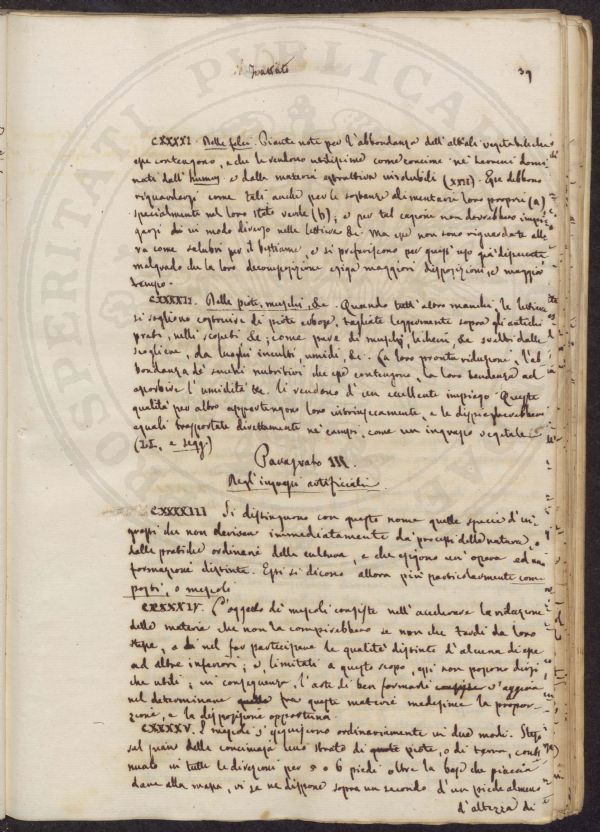 PROSPERITATI PUBLICAE
Il Trattato
39
CXXXXI. Delle felci. Piante note per l'abbondanza dell'alkali vegetabile che
esse contengono, e che le rendono utilissime come concime ne' terreni domi-
nati dall'humus e dalla materia estrattiva insolubili (XXII). Esse debbono
riguardarsi come tali anche per le sostanze alimentarie loro proprie (a)
specialmente nel loro stato verde (b); e per tal cagione non dovrebbero impie-
garsi di un modo diverso nelle lettiere &c. Ma esse non sono riguardate alle
va come salubri per il bestiame, e si preferiscono per quest'uso già disseccate
malgrado che la loro decomposizione esiga maggiori disposizioni, e maggior
tempo.
CXXXXII. Delle piote, muschi, &c. Quando tutt'altro manchi le lettiere
si sogliono costruire di piote erbose, tagliate leggermente sopra gli antichi
prati, nelli scopeti &c; come pure di muschi, licheni, &c svelti dalle
scogliere, da luoghi incolti, umidi, &c. La loro pronta riduzione, l'ab-
bondanza de' succhi nutritivi che esse contengono, la loro tendenza ad
assorbire l'umidità &c. li rendono d'un eccellente impiego. Queste
qualità per altro appartengono loro intrinsecamente, e le
eguali trasportate direttamente ne' campi, come un ingrasso vegetale
(LI. e segg.)
Paragrafo III.
Degl'ingrassi artificiali.
CXXXXIII Si distinguono con questo nome quelle specie d'in-
grassi che non derivan immediatamente da' processi della natura, o
dalle pratiche ordinarie della cultura, e che esigono un'opera ed una
formazione distinta. Essi si dicono allora più particolarmente com-
posti, o mescoli.
CXXXXIV. L'oggetto di mescoli consiste nell'accelerare la riduzione
delle materie che non la compirebbero se non che tardi da loro
stesse, e di nel far partecipare le qualità distinte d'alcuna di esse
ad altre inferiori; e, limitati a questo scopo, essi non possono dirsi
che utili; in conseguenza, l'arte di ben formarli consiste s'aggira
nel determinare quelle fra queste materie medesime la propor-
zione, e la disposizione opportuna.
CXXXXV. I mescoli s'eseguiscono ordinariamente in due modi. Steso
sul piano della concimaja uno strato di piote, o di terra, conti-
nuato in tutte le direzioni per 5 o 6 piedi oltre la base che piaccia
dare alla massa, vi se ne dispone sopra un secondo d'un piede almeno
d'altezza di